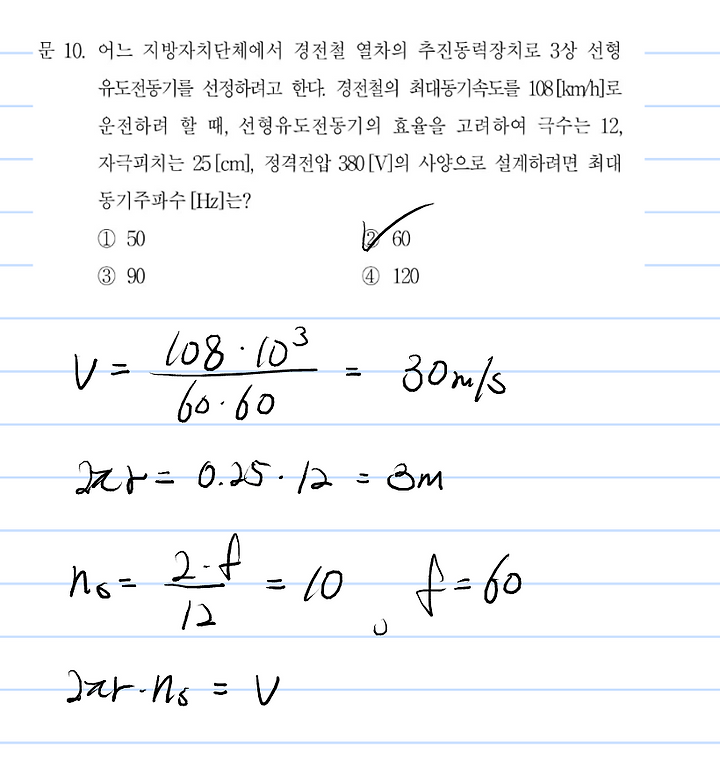 문 10. 어느 지방자치단체에서 경전철 열차의 추진동력장치로 3상 선형
유도전동기를 선정하려고 한다. 경전철의 최대동기속도를 108[km/h]로
운전하려 할 때, 선형유도전동기의 효율을 고려하여 극수는 12,
자극피치는 25[cm], 정격전압 380[V]의 사양으로 설계하려면 최대
동기주파수[Hz]는?
① 50 ② 60
③ 90 ④ 120
V = (108·10³)/(60·60) = 30m/s
2πr = 0.25·12 = 3m
nₛ = (2·f)/12 = 10, f = 60
2πr·nₛ = V